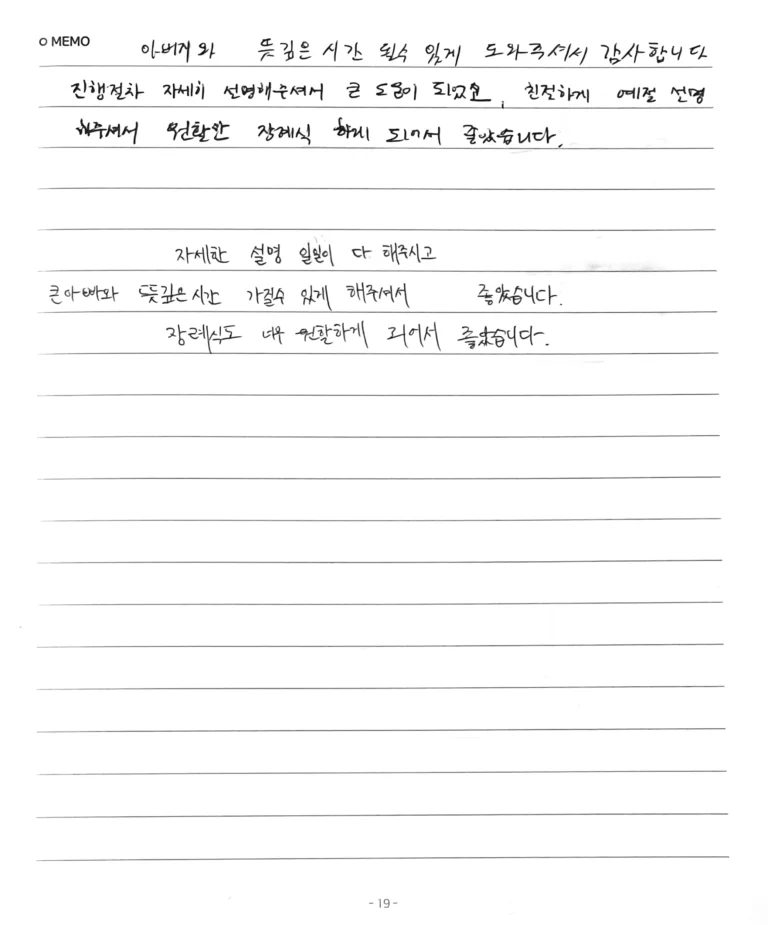 MEMO
아버지와 뜻깊은 시간 될수 있게 도와주셔서 감사합니다
진행절차 자세히 설명해주셔서 큰 도움이 되었고, 친절하게 예절 설명
해주셔서 원활한 장례식 하게 되어서 좋았습니다.
자세한 설명 일일이 다 해주시고
큰아빠와 뜻깊은 시간 가질수 있게 해주셔서 좋았습니다.
장례식도 너무 원활하게 되어서 좋았습니다.
- 19 -